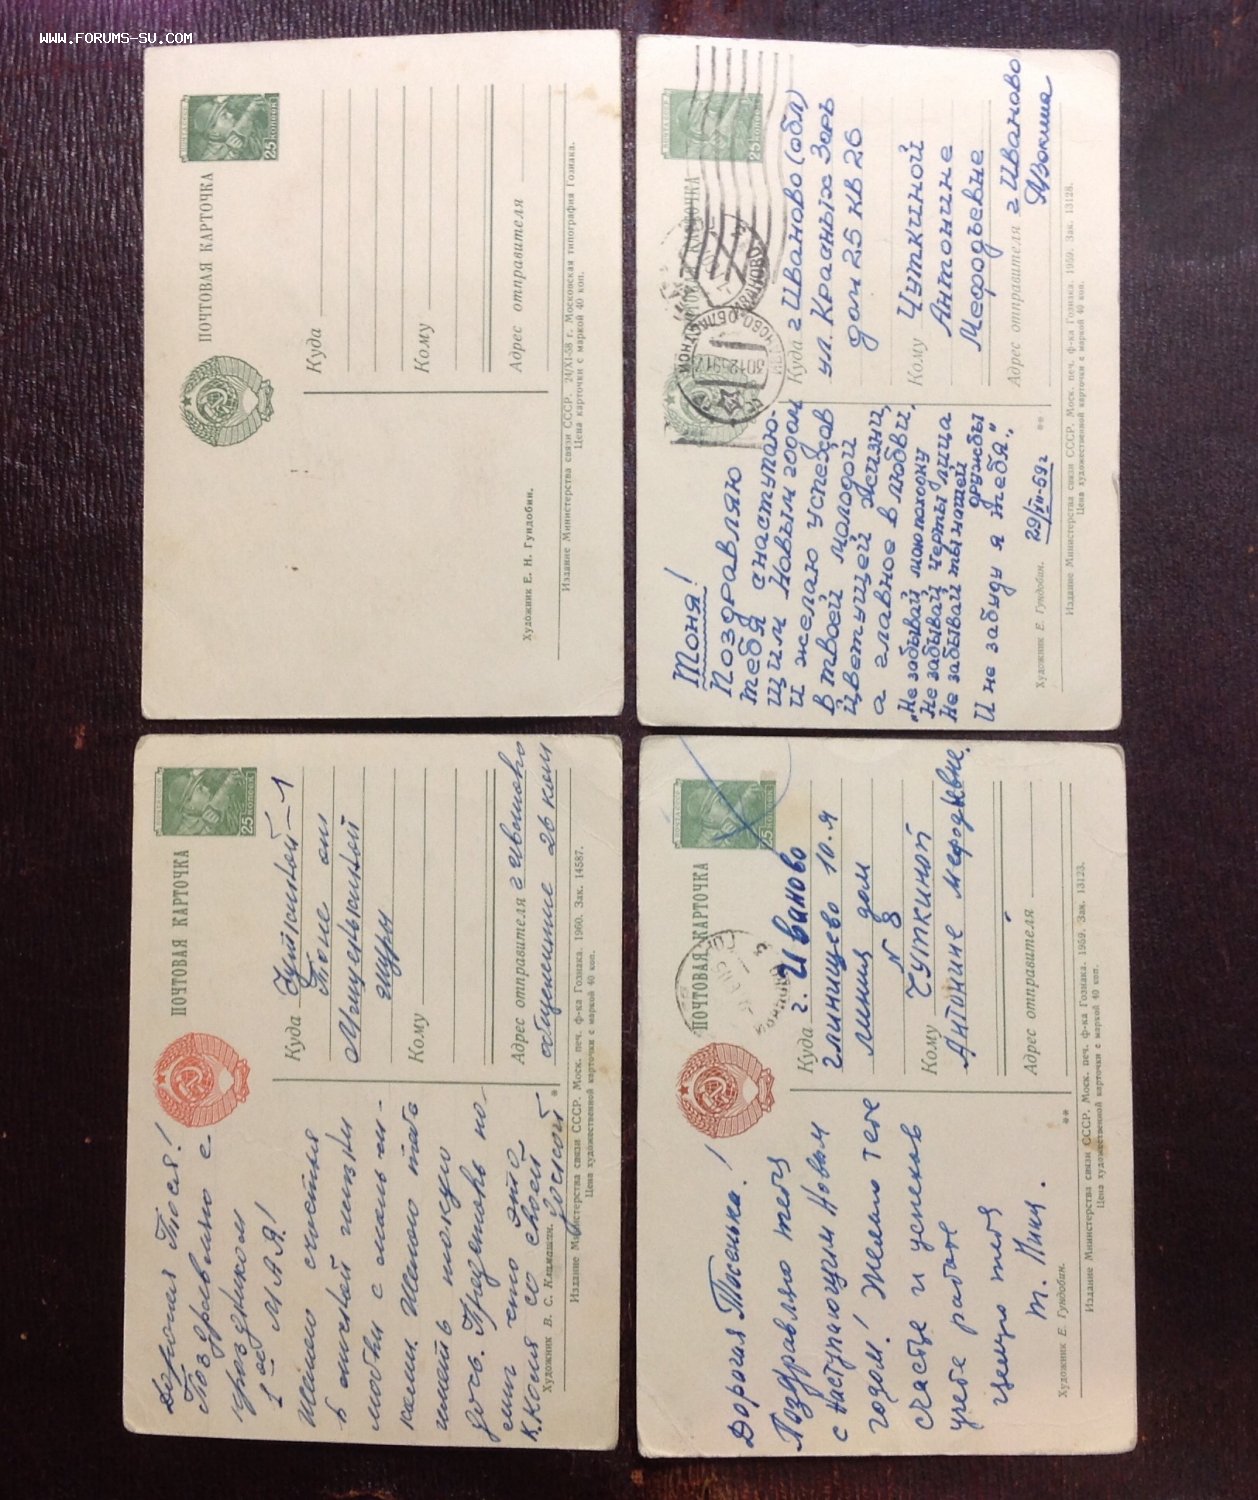 www.forums-su.com
ПОЧТОВАЯ КАРТОЧКА
25 КОПЕЕК
Куда
Кому
Адрес отправителя
Художник Е. Н. Гундобин.
Издание Министерства связи СССР. 24/XI-58 г. Московская типография Гознака.
Цена карточки с маркой 40 коп.
ПОЧТОВАЯ КАРТОЧКА
25 КОПЕЕК
Тоня!
Поздравляю
тебя с наступаю-
щим Новым годом
и желаю успехов
в твоей молодой
цветущей жизни,
а главное в любви.
„Не забывай мою походку
Не забывай черты лица
Не забывай ты нашей
дружбы
И не забуду я тебя".
29/XII-59г
Куда г Иваново (обл)
ул. Красных Зорь
дом 25 кв 26
Кому Чуткиной
Антонине
Мефодьевне
Адрес отправителя г Иваново
Художник Е. Гундобин. **
Издание Министерства связи СССР. Моск. печ. ф-ка Гознака. 1959. Зак. 13128.
Цена художественной карточки с маркой 40 коп.
ПОЧТОВАЯ КАРТОЧКА
25 КОПЕЕК
Дорогая Тося!
Поздравляю с
праздником
1ое МАЯ!
Желаю счастья
в личной жизни
любви с
Желаю тебе
иметь такую
дочь. Представь
что это
К.Копия со своей
Куда Чуткиной
Тоне от
Шуры
Кому
Адрес отправителя г Иваново
общежитие 26 ком
Художник В. С. Климашин. *
Издание Министерства связи СССР. Моск. печ. ф-ка Гознака. 1960. Зак. 14587.
Цена художественной карточки с маркой 40 коп.
ПОЧТОВАЯ КАРТОЧКА
25 КОПЕЕК
Дорогая Тосенька!
Поздравляю тебя
с наступающим Новым
годом! Желаю тебе
счастье и успехов
учебе работе
целую тебя
Куда г. Иваново
глинищево 10-я
линия дом
N 8
Кому Чуткиной
Антонине мефодьевне.
Адрес отправителя
Художник Е. Гундобин. **
Издание Министерства связи СССР. Моск. печ. ф-ка Гознака. 1959. Зак. 13123.
Цена художественной карточки с маркой 40 коп.